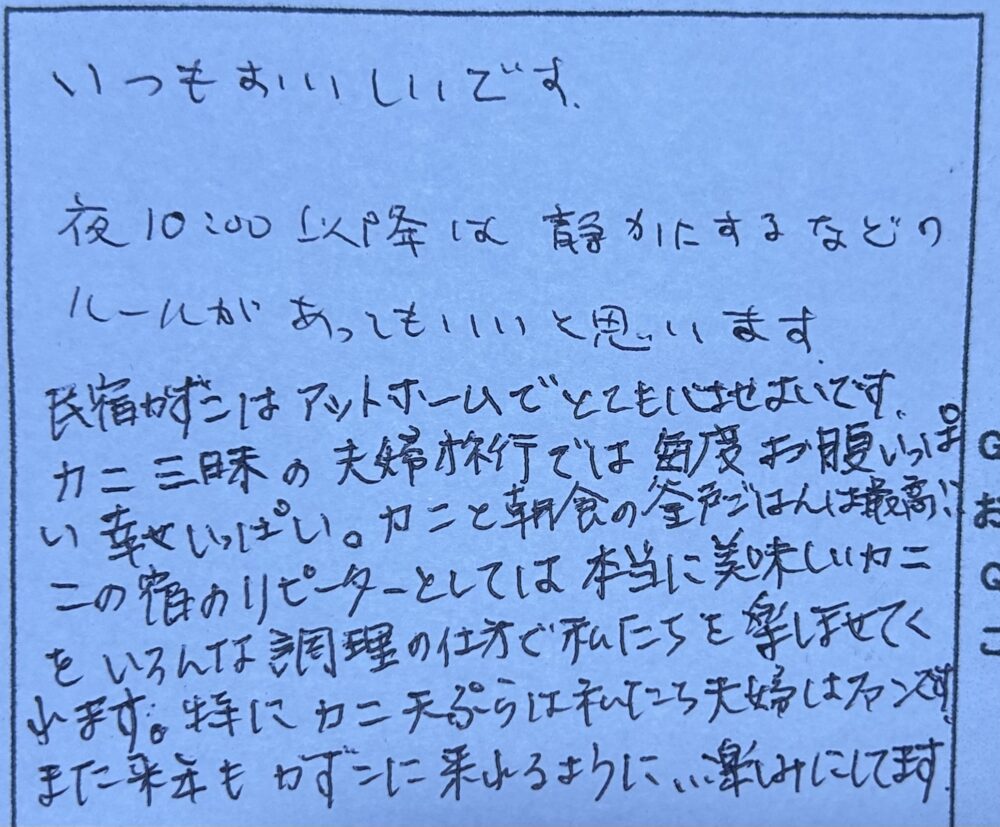 いつもおいしいです.
夜10:00以降は 静かにするなどの
ルールが あってもいいと思います.
民宿かずこは アットホームで とても しあわせです.
カニ三昧の 夫婦旅行では 毎度 お腹いっぱ
い 幸せいっぱい。カニと朝食の釜戸ごはんは最高!!
この宿のリピーターとしては 本当に美味しいカニ
を いろんな 調理の仕方で私たちを 楽しませてく
れます。特に カニ天ぷらは私たち夫婦はファンです.
また来年も かずこに来れるように、、楽しみにしてます.
G
お
Q
こ